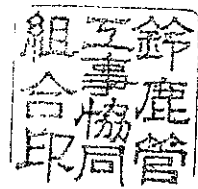 鈴鹿管
工事協同
組合印